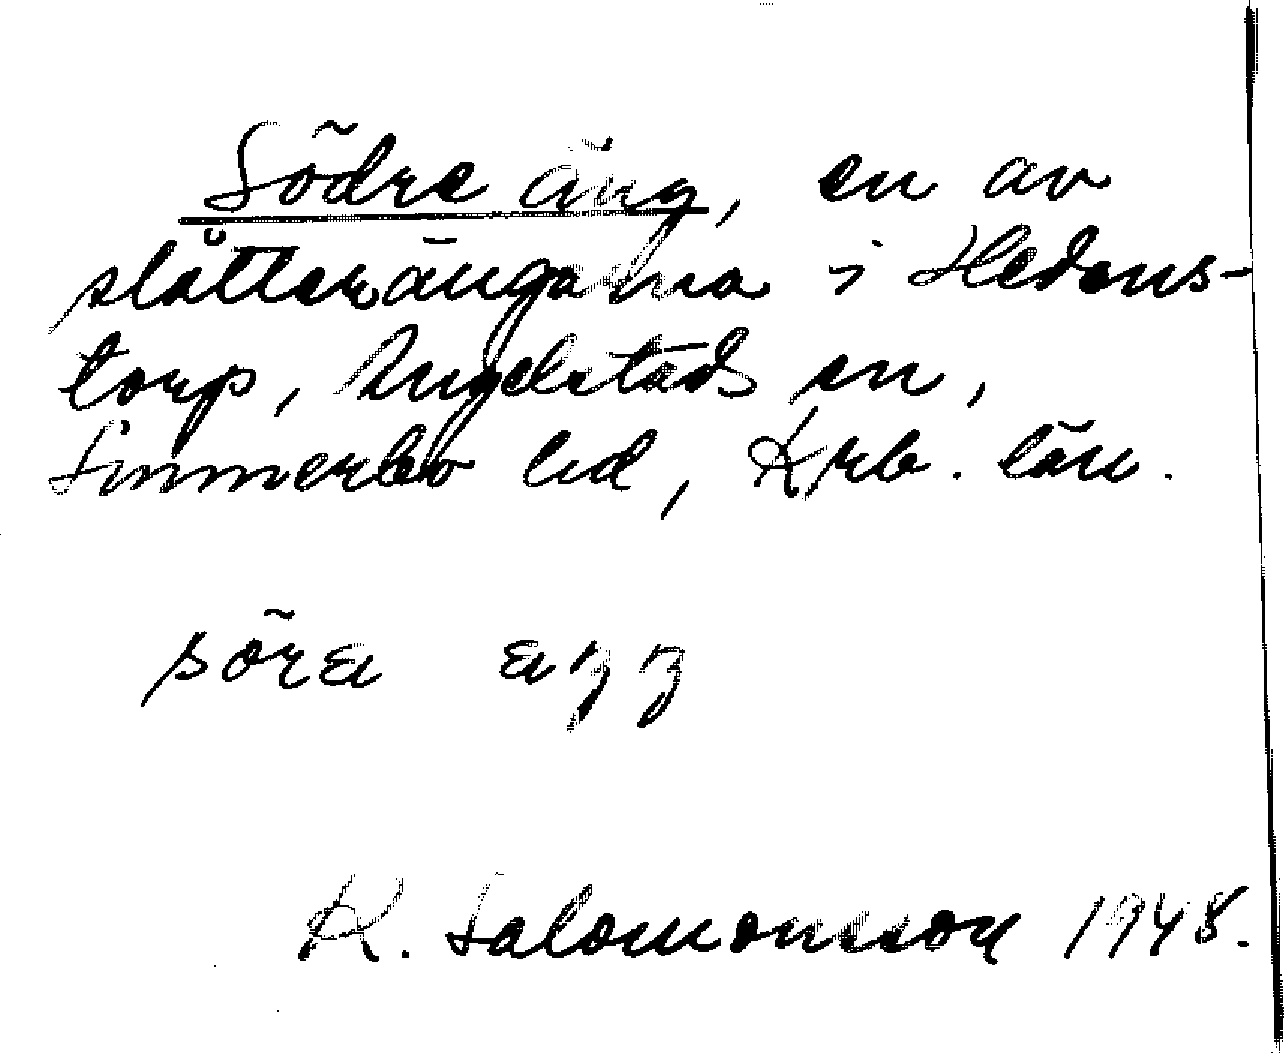 Södre äng, en av
slåtterängarna i Hedens-
torp, Angelstads sn,
Sunnerbo hd, Krb. län.
söra æŋŋ
K. Salomonsson 1948.